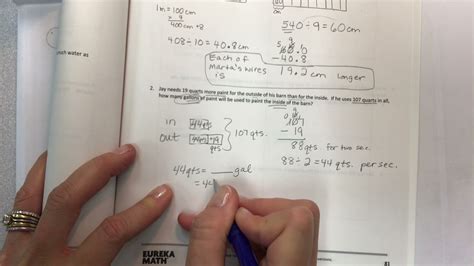 1m = 100cm
x 4
400cm + 8
408÷10 = 40.8cm
540÷9 = 60cm
- 40.8
19.2 cm longer
Each of
Marta's wires
is
much water as
2. Jay needs 19 quarts more paint for the outside of his barn than for the inside. If he uses 107 quarts in all,
how many gallons of paint will be used to paint the inside of the barn?
in 44qts
out 44qts+19 qts
107 qts.
107
- 19
88 qts for two sec.
88÷2 = 44 qts. per sec.
44qts = ___ gal
= 4
EUREKA
MATH
81